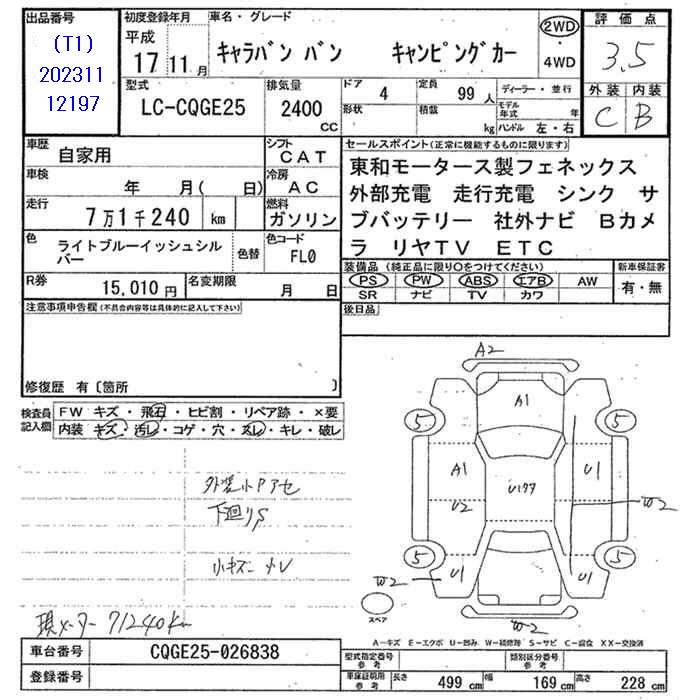 出品番号
(T1)
202311
12197
初度登録年月
平成
17 11 月
車名・グレード
キャラバン バン キャンピングカー
2WD
4WD
評価点
3.5
型式
LC-CQGE25
排気量
2400
cc
ドア
4
定員
99 人
形状
積載
kg
ディーラー・並行
モデル年式
年
ハンドル 左・右
外装
C
内装
B
車歴
自家用
シフト
CAT
車検
年 月( 日)
冷房
AC
走行
7万1千240 km
燃料
ガソリン
色
ライトブルーイッシュシル
バー
色替
色コード
FL0
R券
15,010 円
名変期限
月 日
セールスポイント(正常に機能するものに限ります)
東和モータース製フェネックス
外部充電 走行充電 シンク サ
ブバッテリー 社外ナビ Bカメ
ラ リヤTV ETC
装備品 (純正品に限り○をつけてください)
PS PW ABS エアB AW
SR ナビ TV カワ
新車保証書
有・無
後日品
注意事項申告欄(不具合内容等は具体的に記入して下さい)
修復歴 有〔箇所 〕
検査員
記入欄
FW キズ・飛石・ヒビ割・リペア跡・×要
内装 キズ・汚レ・コゲ・穴・スレ・キレ・破レ
外装小Pアセ
下廻りS
小キズ
現メーター 71240Km
A2
A1
5
5
A1
U1
U2
W2
5
5
U1
U1
W2
W2
スペア
A-キズ E-エクボ U-凹み W-補修跡 S-サビ C-腐食 XX-交換済
車台番号
CQGE25-026838
登録番号
型式指定番号
参考
類別区分番号
参考
車庫証明用
参考
長さ 499 cm
幅 169 cm
高さ 228 cm